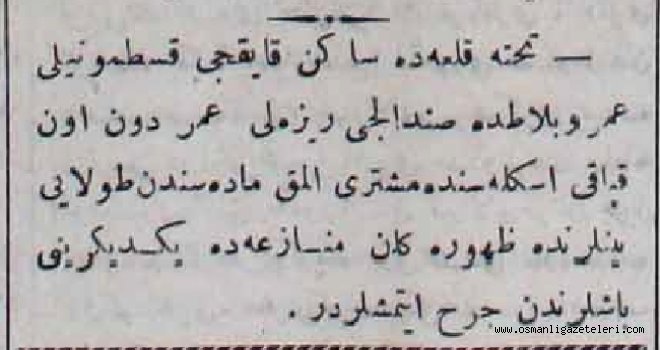 — تخته قلعه‌ده ساكن قايقجی قسطمونیلی
عمر وبلاطده صندالجی ریزه‌لی عمر دون اون
قپاقی اسكله‌سنده مشتری المق ماده‌سندن طولایی
بینلرنده ظهوره كلن منازعه‌ده یكدیكرینی
باشلرندن جرح ایتمشلردر .
www.osmanligazeteleri.com